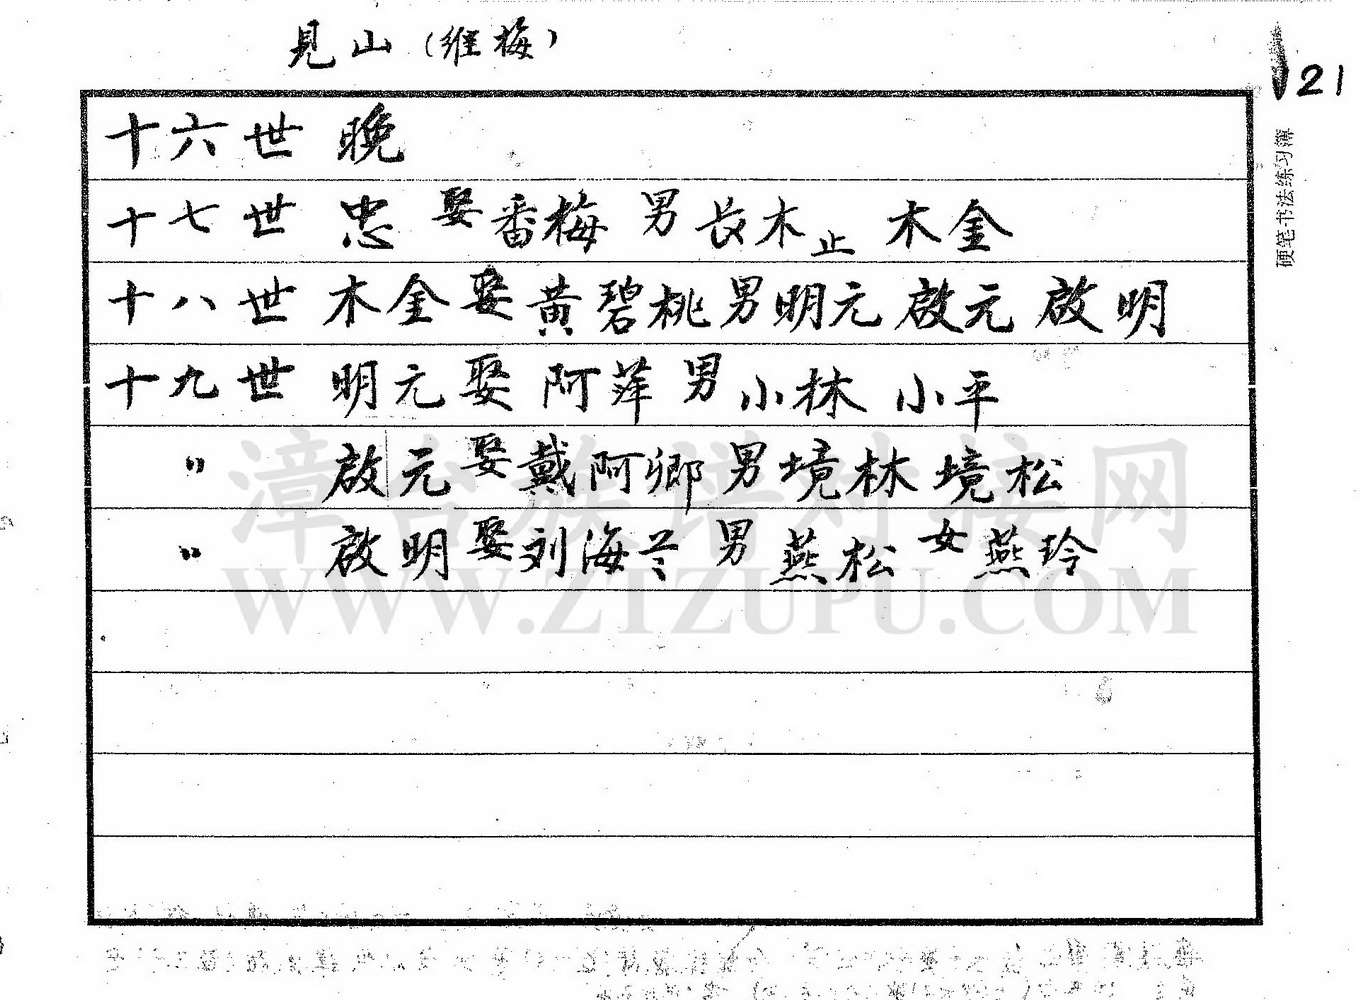 見山（维梅）
121
硬笔书法练习簿
十六世 晚
十七世 忠 娶番梅 男长木止 木金
十八世 木金娶黄碧桃男明元 啟元 啟明
十九世 明元娶 阿萍 男小林 小平
〃 啟元娶戴阿卿男境林境松
〃 啟明娶刘海兰 男燕松 女燕玲
漳台族谱对接网
WWW.ZTZUPU.COM